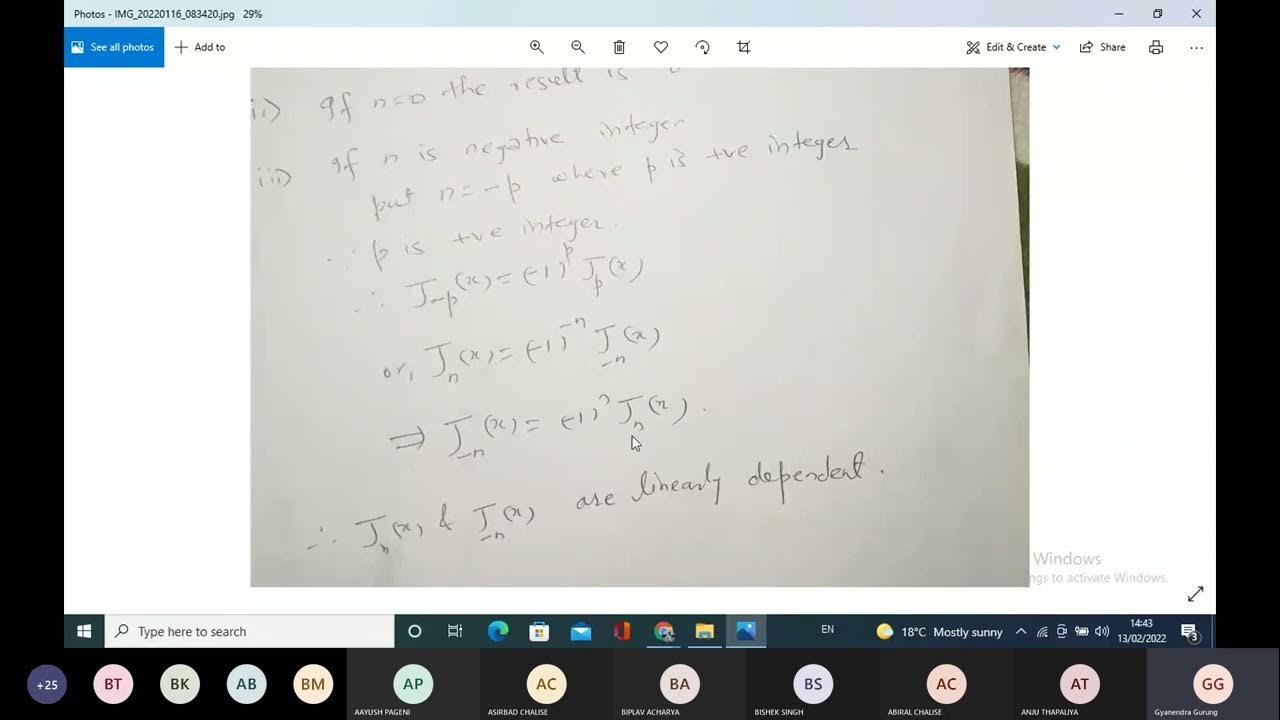 Photos - IMG_20220116_083420.jpg 29%
See all photos
Add to
Edit & Create
Share
ii) If n=0 the result is
iii) If n is negative integer
put n=-p where p is +ve integer
∴ p is +ve integer.
∴ J₋ₚ(x) = (-1)ᵖ Jₚ(x)
or, Jₙ(x) = (-1)⁻ⁿ J₋ₙ(x)
⇒ J₋ₙ(x) = (-1)ⁿ Jₙ(x).
∴ Jₙ(x) & J₋ₙ(x) are linearly dependent.
Windows
ngs to activate Windows.
Type here to search
EN
18°C Mostly sunny
14:43
13/02/2022
3
+25
BT
BK
AB
BM
AP
AC
BA
BS
AC
AT
GG
AAYUSH PAGENI
ASIRBAD CHALISE
BIPLAV ACHARYA
BISHEK SINGH
ABIRAL CHALISE
ANJU THAPALIYA
Gyanendra Gurung